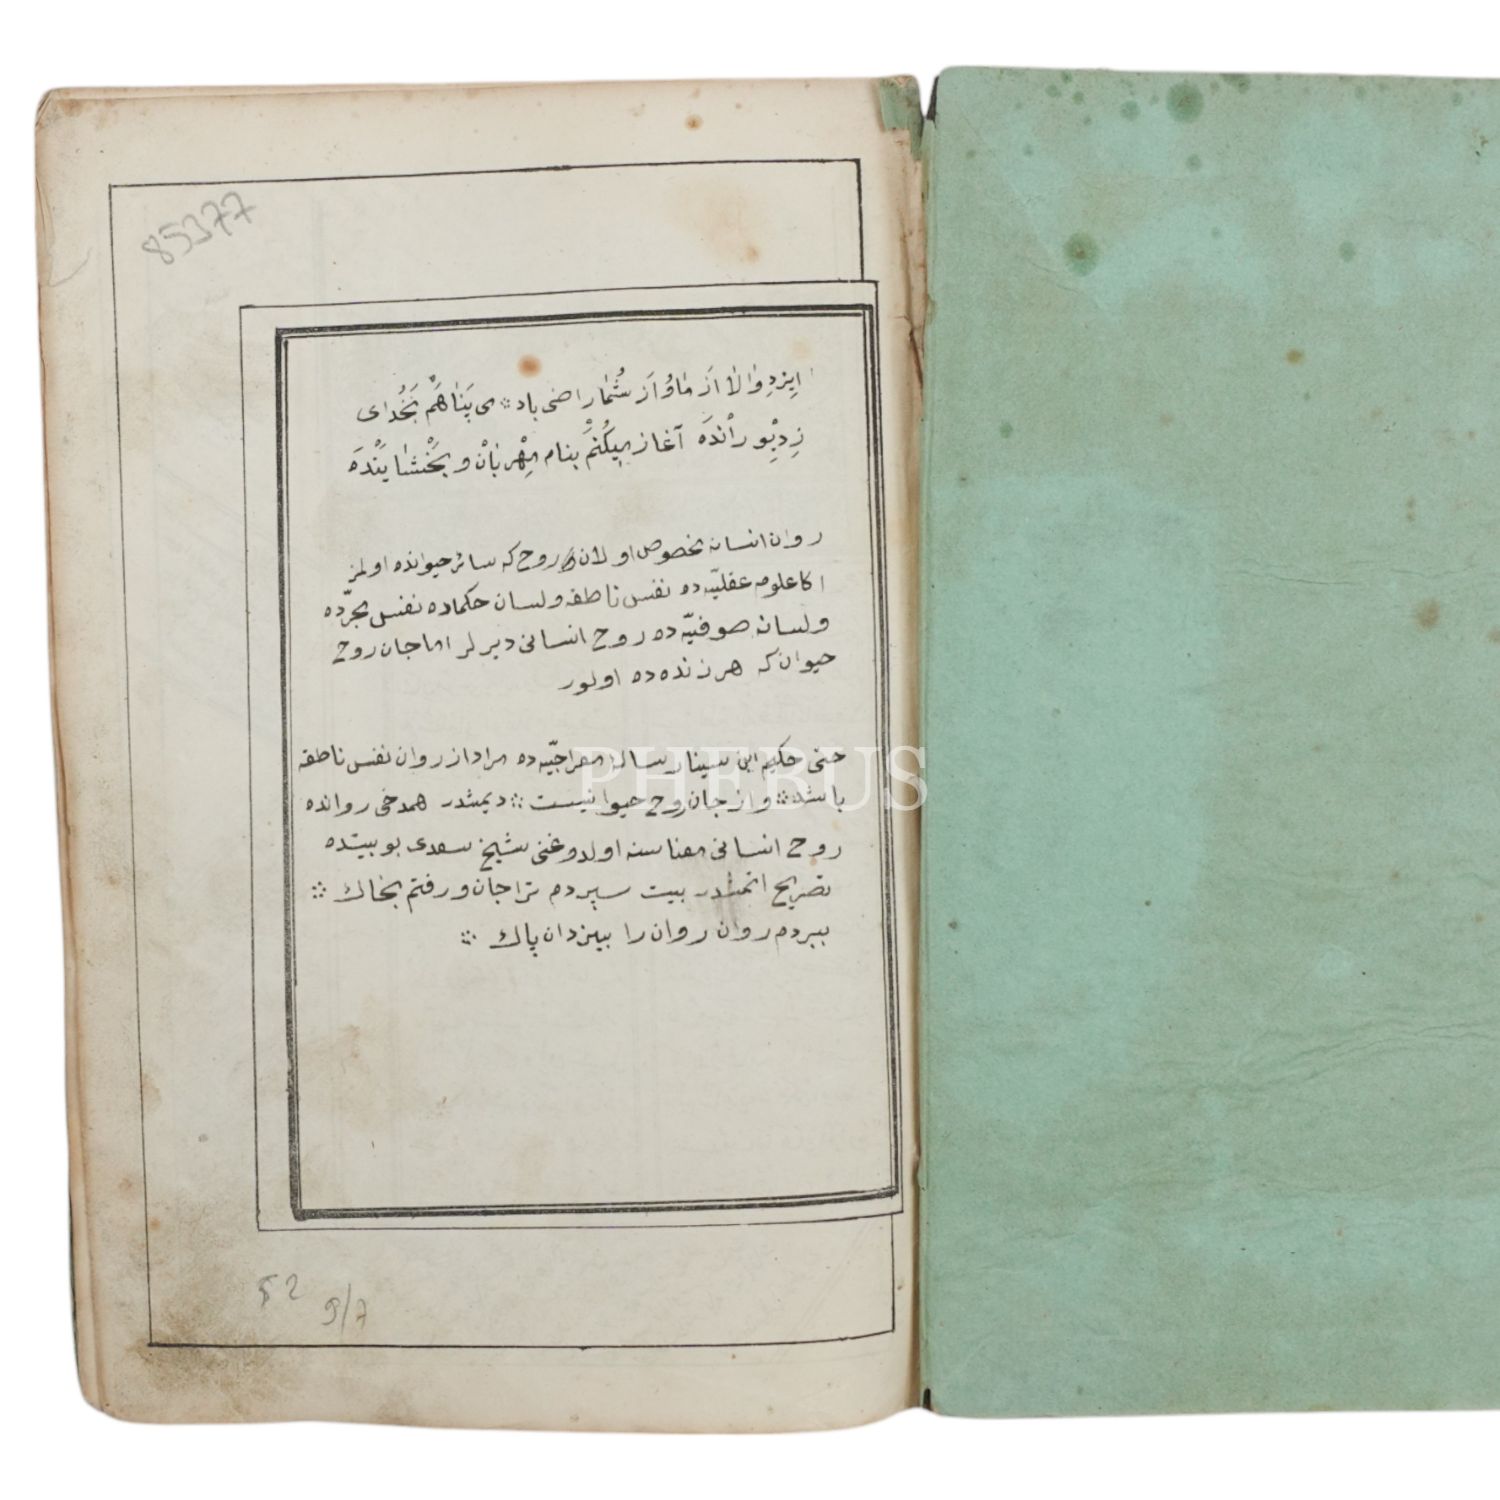 85377
ایزدِ والا اَز ماوُ اَز شُمار اضی باد ∴ می پَناهَم بَخُدای
زِدِیْوِ رانْدَه آغاز میکُنَم بنام مِهْربانْ و بَخْشایَنْدَه
روان انسانه مخصوص اولان روح که سائر حیوانده اولمز
اکا علوم عقلیّه ده نفس ناطقه ولسان حکماده نفس مجرّده
ولسانه صوفیّه ده روح انسانی دیرلر اما جان روح
حیوان که هر زنده ده اولور
حتی حکیم ابن سینا رساله معراجیّه ده مراد از روان نفس ناطقه
باشد ∴ واز جان روح حیوانیست ∴ دیمشدر همدخی روانده
روح انسانی معناسنه اولدوغنی شیخ سعدی بو بیتده
تصریح اتمشدر بیت سپردم ترا جان و رفتم بخاك ∴
ببردم روان روان را بیزدان پاك ∴
52
9/7
PHEBUS